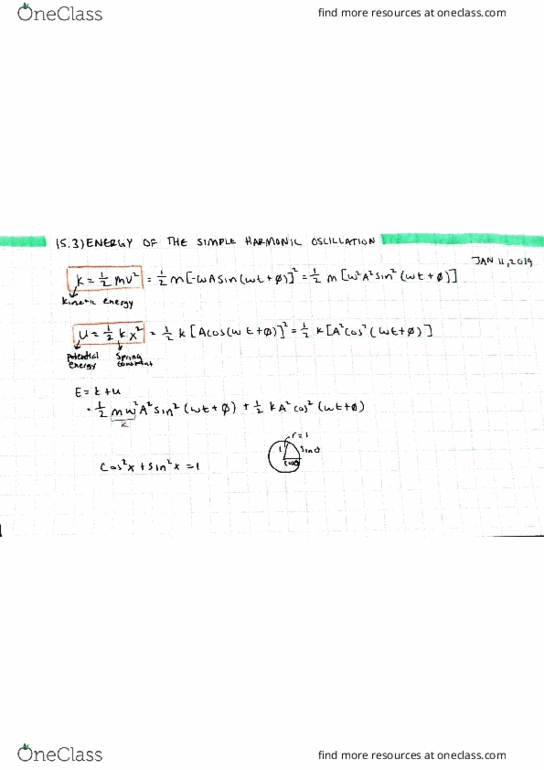 OneClass
find more resources at oneclass.com
15.3) ENERGY OF THE SIMPLE HARMONIC OSCILLATION
JAN 11, 2019
K = ½ mv² = ½ m[-ωA sin(ωt+φ)]² = ½ m[ω²A² sin²(ωt+φ)]
kinetic energy
U = ½ k x² = ½ k[A cos(ωt+φ)]² = ½ k[A² cos²(ωt+φ)]
potential energy
spring constant
E = k + u
= ½ mω² A² sin²(ωt+φ) + ½ kA² cos²(ωt+φ)
k
r=1
1
sinθ
cosθ
cos²x + sin²x = 1
OneClass
find more resources at oneclass.com